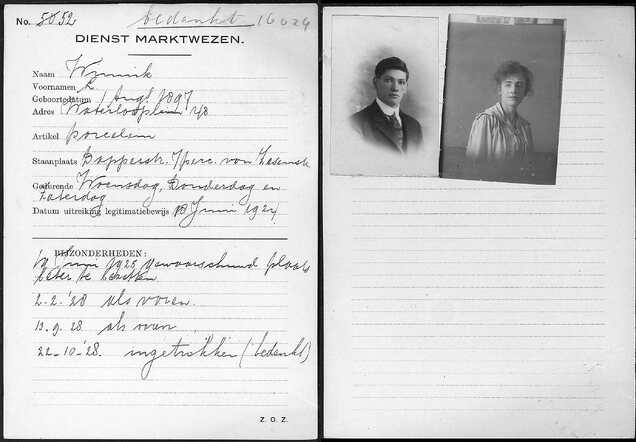 No. 5052 bedankt
DIENST MARKTWEZEN.
Naam Wynnik
Voornamen L
Geboortedatum 1 Augt. 1897
Adres Waterlooplein
Artikel porcelein
Staanplaats Dapperstr.
Gedurende Woensdag, Donderdag en
Zaterdag
Datum uitreiking legitimatiebewijs 18 Juni 1924
BIJZONDERHEDEN:
Juni 1925 gewaarschuwd plaats
beter te bezetten
2-2-'28 als voren.
13-9-28. als voren
22-10-28. ingetrokken (bedankt)
Z. O. Z.